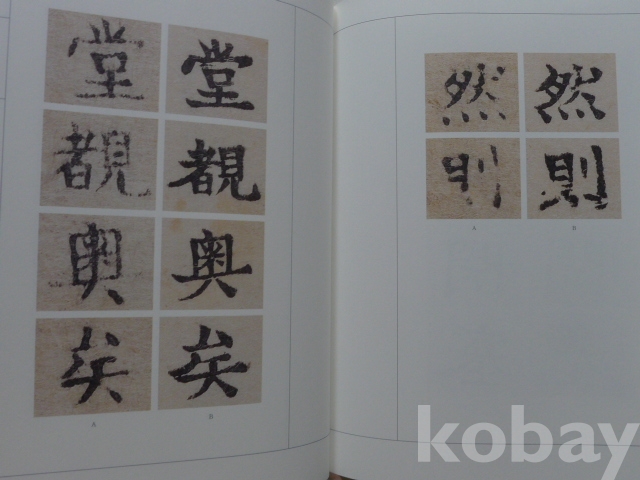 堂 堂
覩 覩
奧 奧
矣 矣
A B
然 然
則 則
A B
kobay